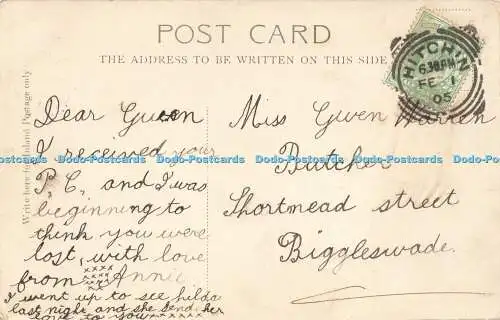 POST CARD
THE ADDRESS TO BE WRITTEN ON THIS SIDE
Write here for Inland Postage only
HITCHIN
6.30PM
FE 1
05
Dear Gwen
I received your
P.C. and I was
beginning to
think you were
lost, with love
from xxxx Annie
I went up to see hilda
last night and she send her
love to you xxxxx
Miss Gwen Warren
Butcher
Shortmead street
Biggleswade.
Dodo-Postcards Dodo-Postcards Dodo-Postcards Dodo-Postcards Dodo-Postcards Dodo-Postcards